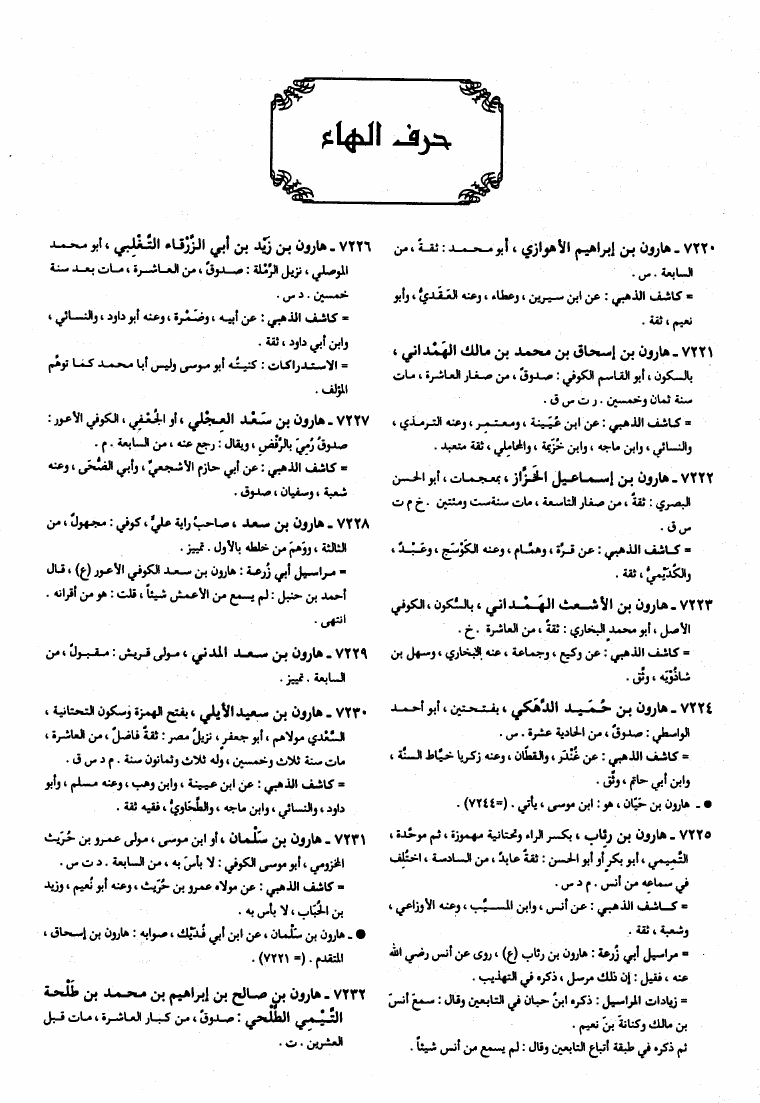 حرف الهاء
٧٢٢٠ ـ هارون بن إبراهيم الأهوازي ، أبو محمد : ثقةٌ ، من
السابعة . س .
= كاشف الذهبي : عن ابن سيرين ، وعطاء ، وعنه العَقَديُّ ، وأبو
نعيم ، ثقة .
٧٢٢١ ـ هارون بن إسحاق بن محمد بن مالك الهَمْداني ،
بالسكون ، أبو القاسم الكوفي : صدوقٌ ، من صغار العاشرة ، مات
سنة ثمان وخمسين . ر ت س ق .
= كاشف الذهبي : عن ابن عُيَينة ، ومعتمر ، وعنه الترمذي ،
والنسائي ، وابن ماجه ، وابن خُزَيمة ، والمحاملي ، ثقة متعبد .
٧٢٢٢ ـ هارون بن إسماعيل الخَزَّاز ، بمعجمات ، أبو الحسن
البصري : ثقةٌ ، من صغار التاسعة ، مات سنة ست ومئتين . خ م ت
س ق .
= كاشف الذهبي : عن قرَّة ، وهمَّام ، وعنه الكَوْسَج ، وعَبْدٌ ،
والكُدَيْميُّ ، ثقة .
٧٢٢٣ ـ هارون بن الأشعث الهَمْداني ، بالسُّكون ، الكوفي
الأصل ، أبو محمدٍ البخاري : ثقةٌ ، من العاشرة . خ .
= كاشف الذهبي : عن وكيع ، وجماعة ، عنه البخاري ، وسهل بن
شاذُوْيَه ، وثِّق .
٧٢٢٤ ـ هارون بن حُمَيد الدَّهَكي ، بفتحتين ، أبو أحمد
الواسطي : صدوقٌ ، من الحادية عشرة . س .
= كاشف الذهبي : عن غُنْدَر ، والقطَّان ، وعنه زكريا خيَّاط السنَّة ،
وابن أبي حاتم ، وثِّق .
● ـ هارون بن حَيَّان ، هو : ابن موسى ، يأتي . (= ٧٢٤٤) .
٧٢٢٥ ـ هارون بن رِئاب ، بكسر الراء وتحتانية مهموزة ، ثم موحَّدة ،
التَّميمي ، أبو بكرٍ أو أبو الحسن : ثقةٌ عابدٌ ، من السادسة ، اختُلِف
في سماعِه من أنس . م د س .
= كاشف الذهبي : عن أنس ، وابن المسيَّب ، وعنه الأوزاعي ،
وشعبة ، ثقة .
= مراسيل أبي زُرعة : هارون بن رئاب (ع) ، روى عن أنس رضي الله
عنه ، فقيل : إن ذلك مرسل ، ذكره في التهذيب .
= زيادات المراسيل : ذكره ابنُ حبان في التابعين وقال : سمع أنسَ
بن مالك وكنانةَ بنَ نعيم .
ثم ذكره في طبقة أتباع التابعين وقال : لم يسمع من أنس شيئاً .
٧٢٢٦ ـ هارون بن زَيْد بن أبي الزَّرْقاء التَّغْلِبي ، أبو محمد
الموصلي ، نزيل الرَّمْلة : صدوقٌ ، من العاشرة ، مات بعد سنة
خمسين . د س .
= كاشف الذهبي : عن أبيه ، وضَمْرة ، وعنه أبو داود ، والنسائي ،
وابن أبي داود ، ثقة .
= الاستدراكات : كنيتُه أبو موسى وليس أبا محمد كما توهَّم
المؤلف .
٧٢٢٧ ـ هارون بن سَعْد العِجْلي ، أو الجُعْفي ، الكوفي الأعور :
صدوقٌ رُميَ بالرَّفْض ، ويقال : رجع عنه ، من السابعة . م .
= كاشف الذهبي : عن أبي حازم الأشجعيِّ ، وأبي الضُّحَى ، وعنه
شعبة ، وسفيان ، صدوق .
٧٢٢٨ ـ هارون بن سعد ، صاحبُ راية عليٍّ ، كوفي : مجهولٌ ، من
الثالثة ، ووَهِمَ من خلطه بالأول . تمييز .
= مراسيل أبي زُرعة : هارون بن سعد الكوفي الأعور (ع) ، قال
أحمد بن حنبل : لم يسمع من الأعمش شيئاً ، قلت : هو من أقرانه .
انتهى .
٧٢٢٩ ـ هارون بن سعد المدني ، مولى قريش : مقبولٌ ، من
السابعة . تمييز .
٧٢٣٠ ـ هارون بن سعيد الأيلي ، بفتح الهمزة وسكون التحتانية ،
السَّعْدي مولاهم ، أبو جعفرٍ ، نزيلُ مصر : ثقةٌ فاضلٌ ، من العاشرة ،
مات سنة ثلاث وخمسين ، وله ثلاث وثمانون سنة . م د س ق .
= كاشف الذهبي : عن ابن عيينة ، وابن وهب ، وعنه مسلم ، وأبو
داود ، والنسائي ، وابن ماجه ، والطَّحَاويُّ ، فقيه ثقة .
٧٢٣١ ـ هارون بن سَلْمان ، أو ابن موسى ، مولى عمرو بن حُرَيث
المخزومي ، أبو موسى الكوفي : لا بأسَ به ، من السابعة . د ت س .
= كاشف الذهبي : عن مولاه عمرو بن حُرَيث ، وعنه أبو نُعيم ، وزيد
بن الحُبَاب ، لا بأس به .
● ـ هارون بن سَلْمان ، عن ابن أبي فُدَيْك ، صوابه : هارون بن إسحاق ،
المتقدم . (= ٧٢٢١) .
٧٢٣٢ ـ هارون بن صالح بن إبراهيم بن محمد بن طَلْحة
التَّيْمي الطَّلْحي : صدوقٌ ، من كبار العاشرة ، مات قبل
العشرين . ت .